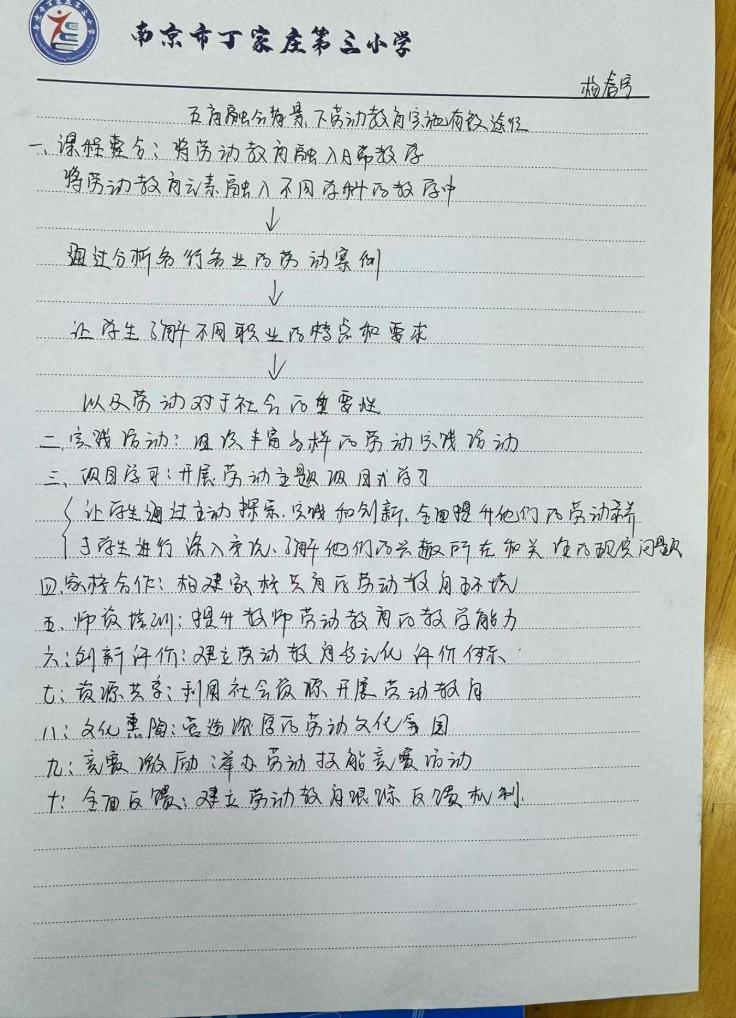 南京市丁家庄第三小学
杨
五育融合背景下劳动教育实施有效途径
一、课程整合：将劳动教育融入日常教学
将劳动教育元素融入不同学科的教学中
↓
通过分析各行各业的劳动案例
↓
让学生了解不同职业的特点和要求
↓
以及劳动对于社会的重要性
二、实践活动：组织丰富多样的劳动实践活动
三、项目学习：开展劳动主题项目式学习
让学生通过主动探索、实践和创新，全面提升他们的劳动素养
与学生进行深入交流，了解他们的兴趣所在和关注的现实问题
四、家校合作：构建家校共育的劳动教育环境
五、师资培训：提升教师劳动教育的教学能力
六：创新评价：建立劳动教育多元化评价体系
七：资源共享：利用社会资源开展劳动教育
八：文化熏陶：营造浓厚的劳动文化氛围
九：竞赛激励：举办劳动技能竞赛活动
十：全面反馈：建立劳动教育跟踪反馈机制